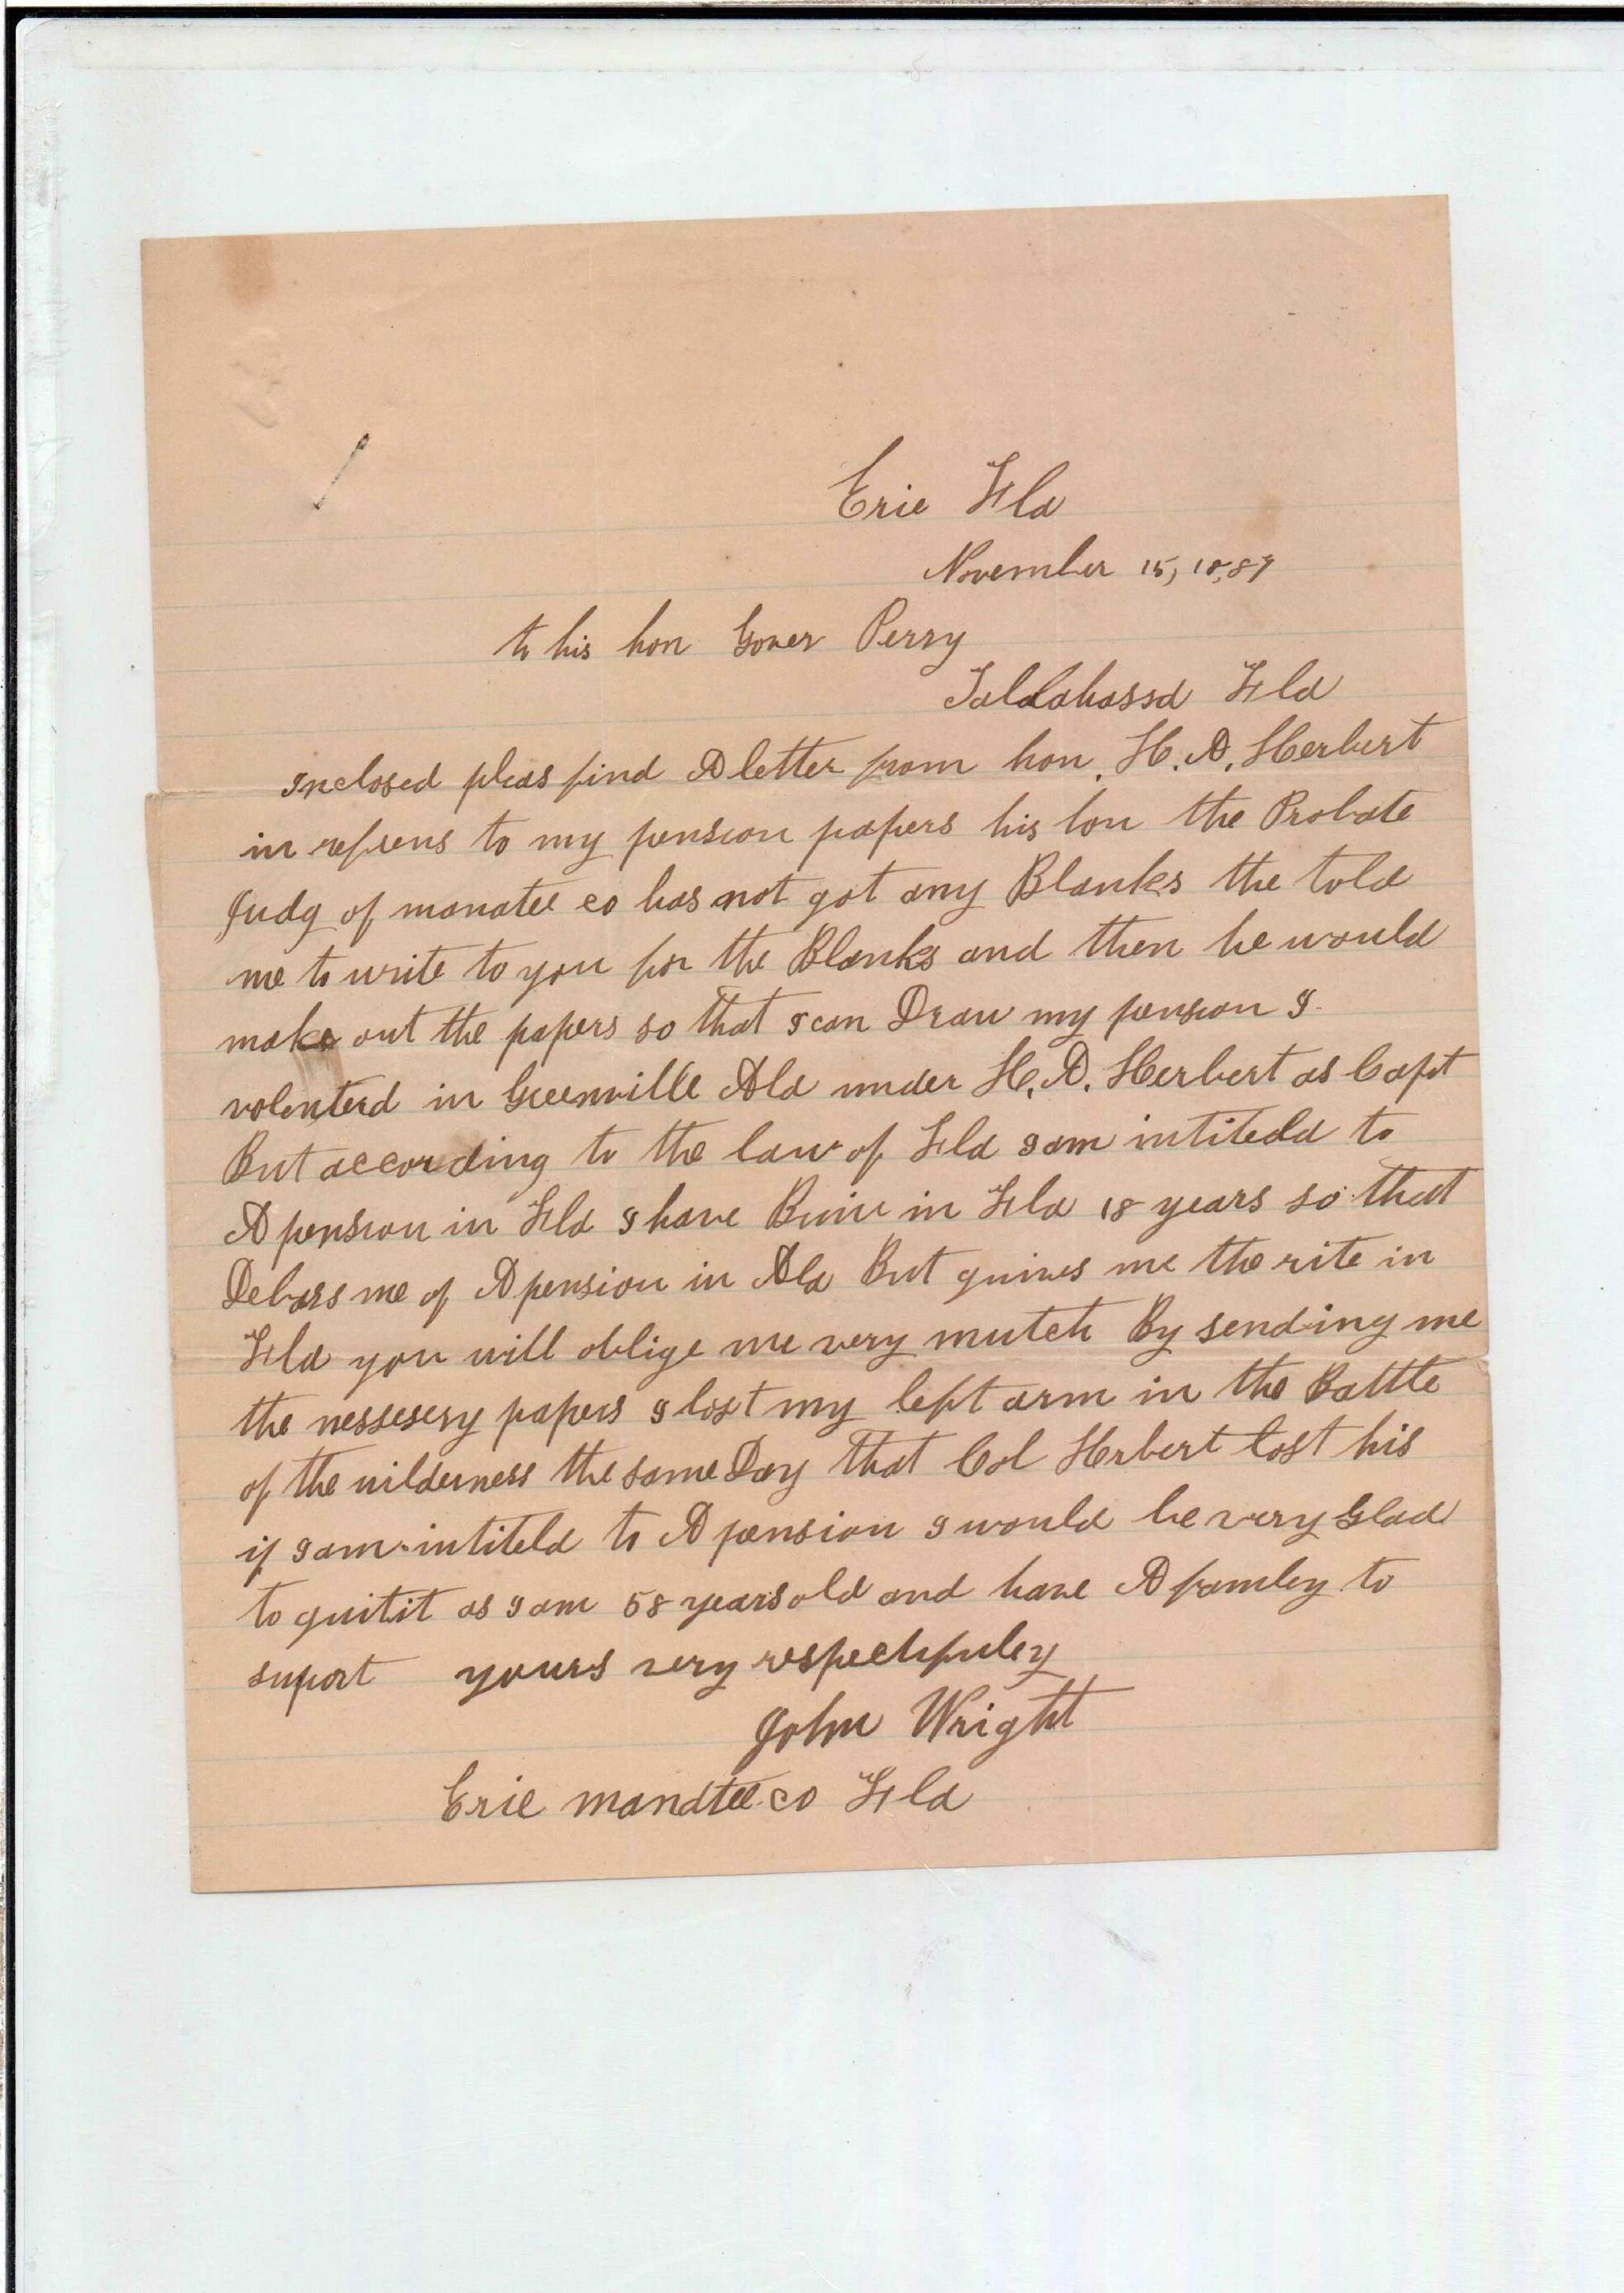 Erie Fla
November 15, 18,87
to his hon Gover Perry
Talalahassa Fla
inclosed pleas find A letter from hon. H. A. Herbert
in refrens to my pension papers his hon the Probate
Judg of manatee co has not got any Blanks the told
me to write to you for the Blanks and then he would
make out the papers so that I can Draw my pension I
volenterd in Greenville Ala under H. A. Herbert as Capt
But according to the law of Fla I am intiteld to
A pension in Fla I have Binn in Fla 18 years so that
Debars me of A pension in Ala But guives me the rite in
Fla you will oblige me very mutch By sending me
the nessesery papers I lost my left arm in the Battle
of the wilderness the same Day that Col Herbert lost his
if I am intiteld to A pension I would be very Glad
to guitit as I am 58 years old and have A famley to
suport yours very respectfuley
John Wright
Erie manatee co Fla